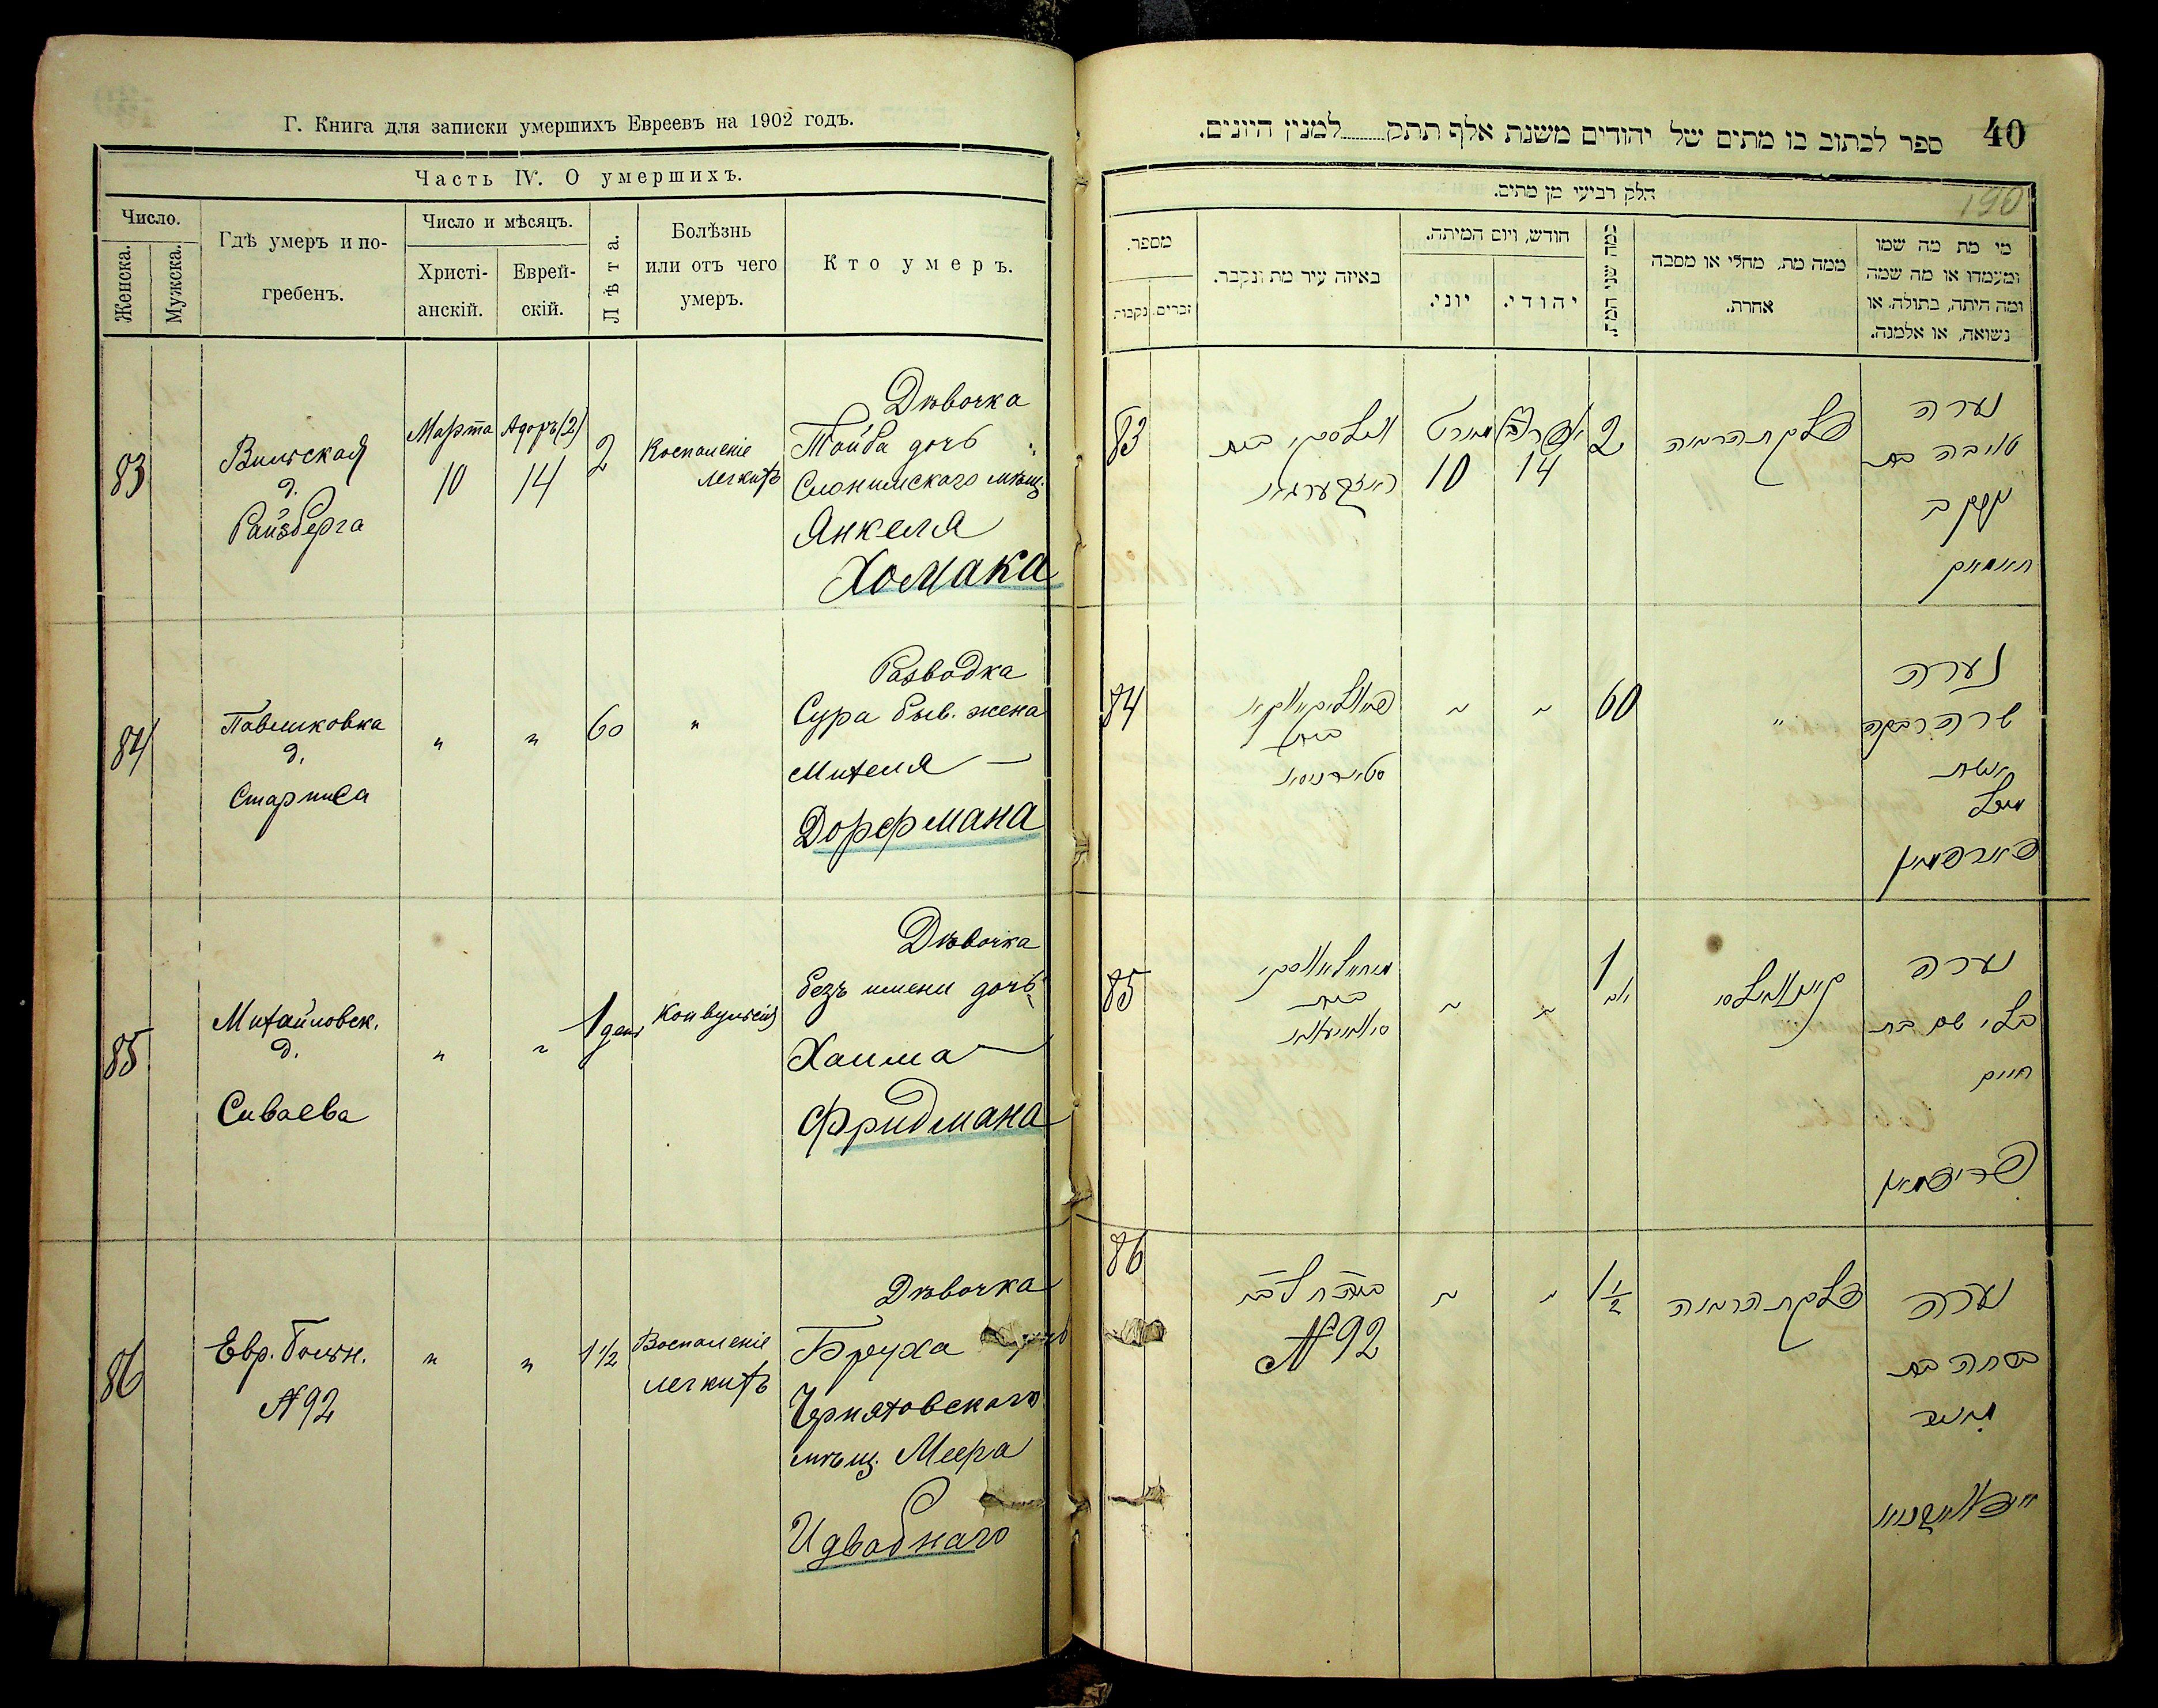 Г. Книга для записки умершихъ Евреевъ на 1902 годъ.
Часть IV. О умершихъ.
Число.
Женска.
Мужска.
Гдѣ умеръ и по-
гребенъ.
Число и мѣсяцъ.
Христі-
анскій.
Еврей-
скій.
Лѣта.
Болѣзнь
или отъ чего
умеръ.
Кто умеръ.
83
Вильская
д.
Райзберга
Марта
10
Адоръ (2)
14
2
Воспаленіе
легкихъ
Дѣвочка
Тайба дочь
Слонимскаго мѣщ.
Янкеля
Хомака
84
Павликовка
д.
"
"
60
"
Разводка
Сура быв. жена
Михеля
Дорфмана
85
Михайловск.
д.
Сиваева
"
"
1 день
Конвульсія
Дѣвочка
безъ имени дочь
Хаима
Фридмана
86
Евр. больн.
№ 92
"
"
1 1/2
Воспаленіе
легкихъ
Дѣвочка
Бруха дочь
Черняховскаго
мѣщ. Меера
40
ספר לכתוב בו מתים של יהודים משנת אלף תתק למנין היונים.
190
חלק רביעי מן מתים.
מספר.
נקבות
זכרים.
באיזה עיר מת ונקבר.
חודש, ויום המיתה.
יוני.
יהודי.
כמה שני המת.
ממה מת, מחלי או מסבה
אחרת.
מי מת מה שמו
ומעמדו או מה שמה
ומה היתה, בתולה, או
נשואה, או אלמנה.
83
ווילסקי בית
מארט
10
אדר
14
2
דלקת הריאה
נערה
טויבה בת
יעקב
חאמאק
84
בית
"
"
60
"
שרה רבקה
אשת
דארפמאן
85
בית
"
"
1
יום
נערה
בלי שם בת
חיים
פרידמאן
86
№ 92
"
"
1 1/2
דלקת הריאה
נערה
ברכה בת
מאיר